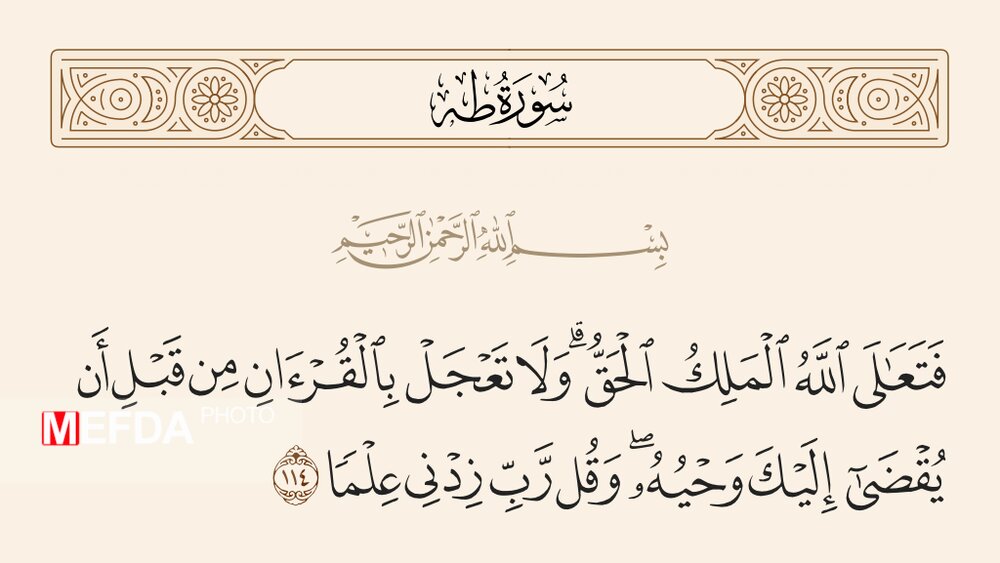 سُورَةُ طه
بِسْمِ ٱللَّهِ ٱلرَّحْمَٰنِ ٱلرَّحِيمِ
فَتَعَٰلَى ٱللَّهُ ٱلْمَلِكُ ٱلْحَقُّ ۗ وَلَا تَعْجَلْ بِٱلْقُرْءَانِ مِن قَبْلِ أَن
يُقْضَىٰٓ إِلَيْكَ وَحْيُهُۥ ۖ وَقُل رَّبِّ زِدْنِى عِلْمًا ١١٤
MEFDA PHOTO